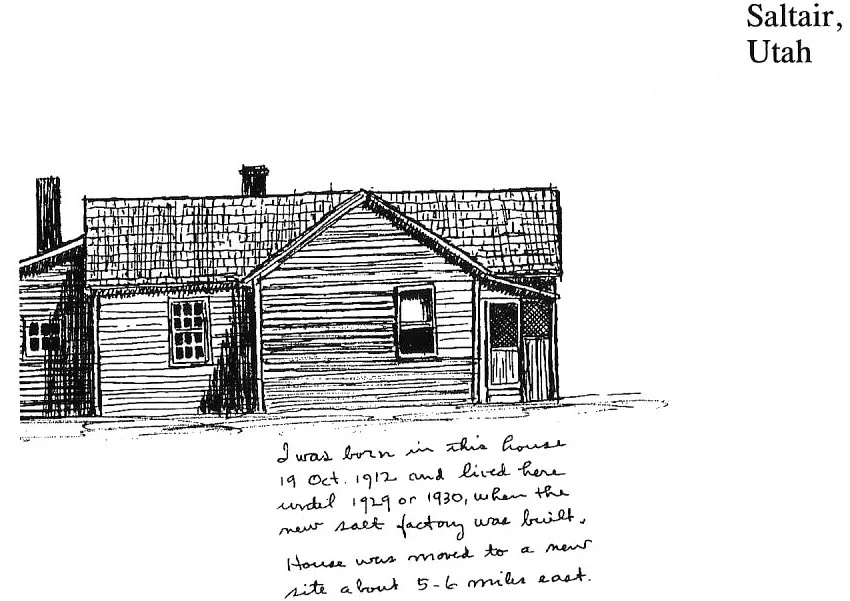 Saltair,
Utah
I was born in this house
19 Oct. 1912 and lived here
until 1929 or 1930, when the
new salt factory was built.
House was moved to a new
site about 5-6 miles east.